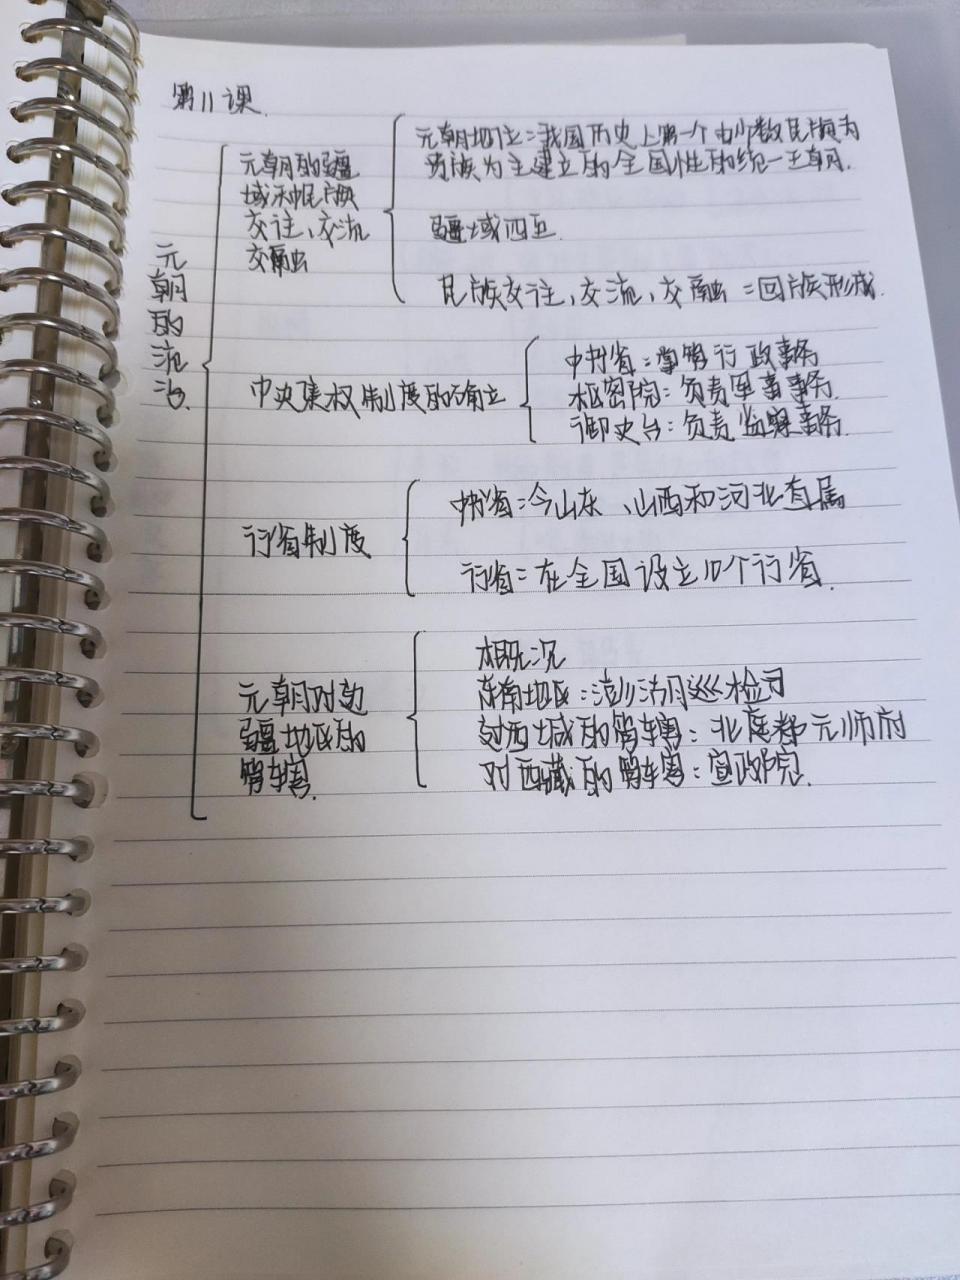 第11课
元朝的统治
元朝的疆
域和民族
交往、交流
交融
元朝地位：我国历史上第一个由少数民族为
贵族为主建立的全国性的统一王朝.
疆域四至
民族交往、交流、交融：回族形成.
中央集权制度的确立
中书省：掌管行政事务
枢密院：负责军事事务.
御史台：负责监察事务.
行省制度
中书省：今山东、山西和河北直属
行省：在全国设立10个行省.
元朝对边
疆地区的
管辖.
概况
东南地区：澎湖巡检司
对西域的管辖：北庭都元帅府
对西藏的管辖：宣政院.